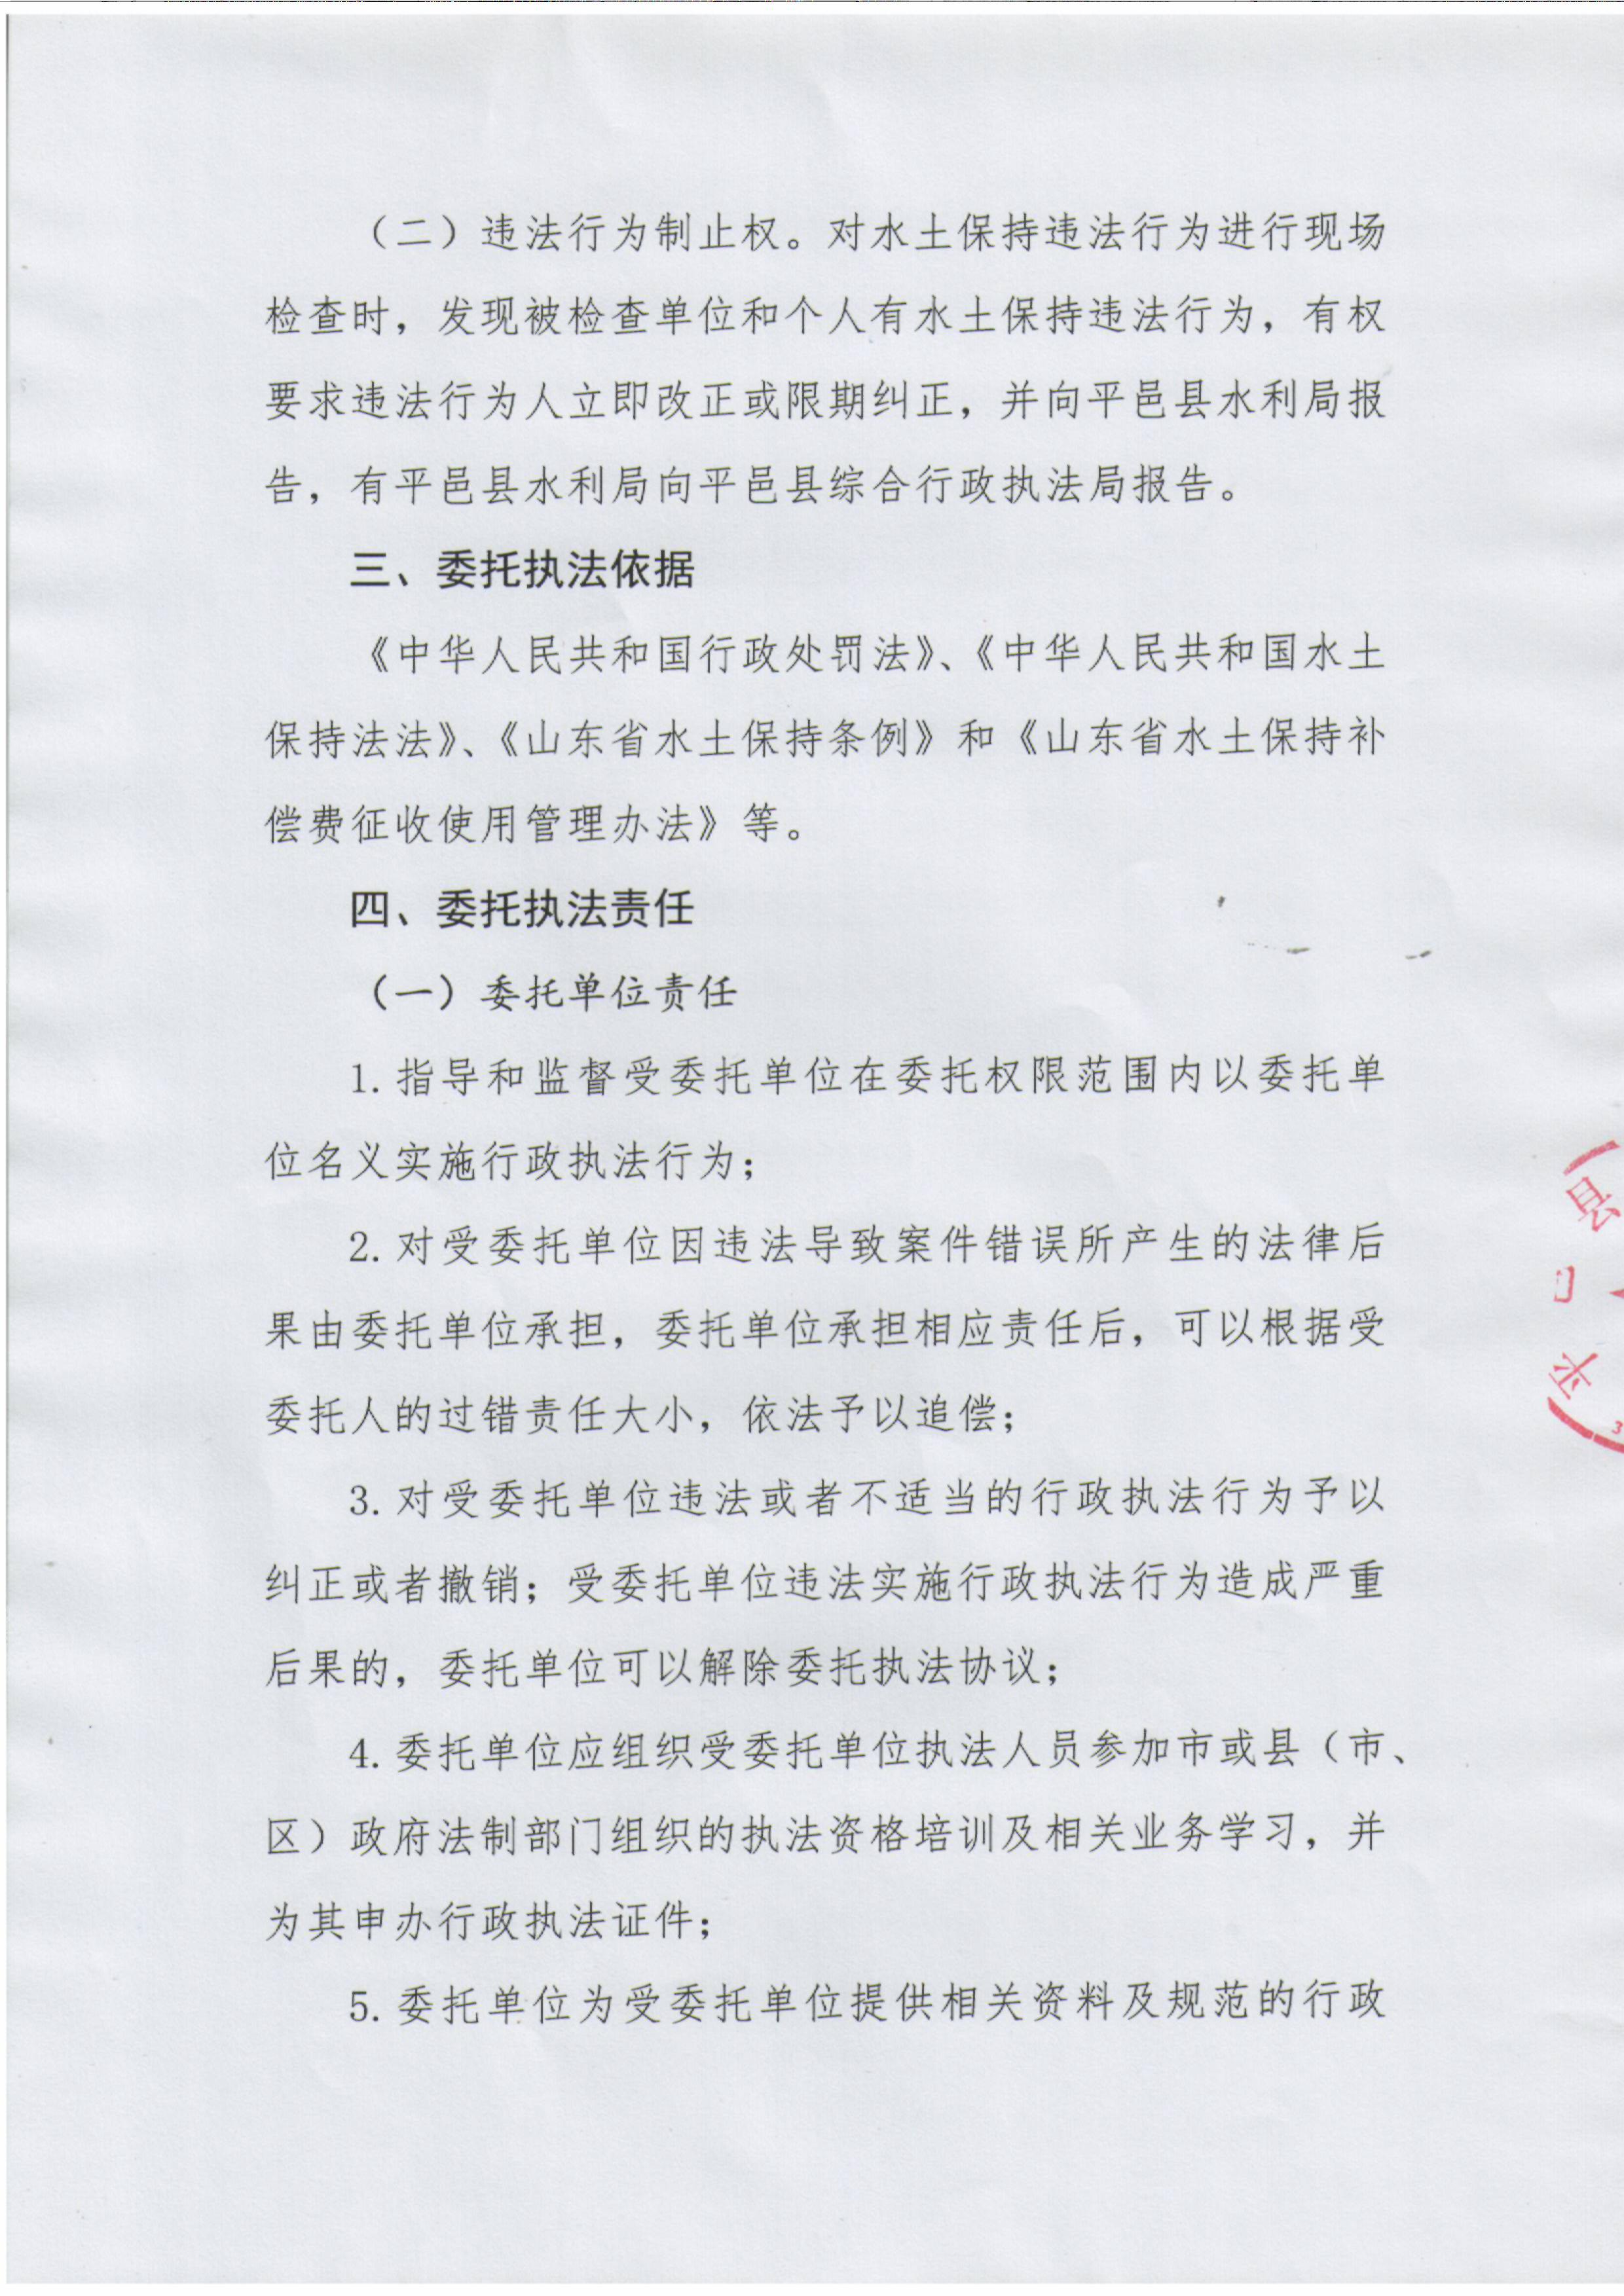 （二）违法行为制止权。对水土保持违法行为进行现场
检查时，发现被检查单位和个人有水土保持违法行为，有权
要求违法行为人立即改正或限期纠正，并向平邑县水利局报
告，有平邑县水利局向平邑县综合行政执法局报告。
三、委托执法依据
《中华人民共和国行政处罚法》、《中华人民共和国水土
保持法法》、《山东省水土保持条例》和《山东省水土保持补
偿费征收使用管理办法》等。
四、委托执法责任
（一）委托单位责任
1.指导和监督受委托单位在委托权限范围内以委托单
位名义实施行政执法行为；
2.对受委托单位因违法导致案件错误所产生的法律后
果由委托单位承担，委托单位承担相应责任后，可以根据受
委托人的过错责任大小，依法予以追偿；
3.对受委托单位违法或者不适当的行政执法行为予以
纠正或者撤销；受委托单位违法实施行政执法行为造成严重
后果的，委托单位可以解除委托执法协议；
4.委托单位应组织受委托单位执法人员参加市或县（市、
区）政府法制部门组织的执法资格培训及相关业务学习，并
为其申办行政执法证件；
5.委托单位为受委托单位提供相关资料及规范的行政
县